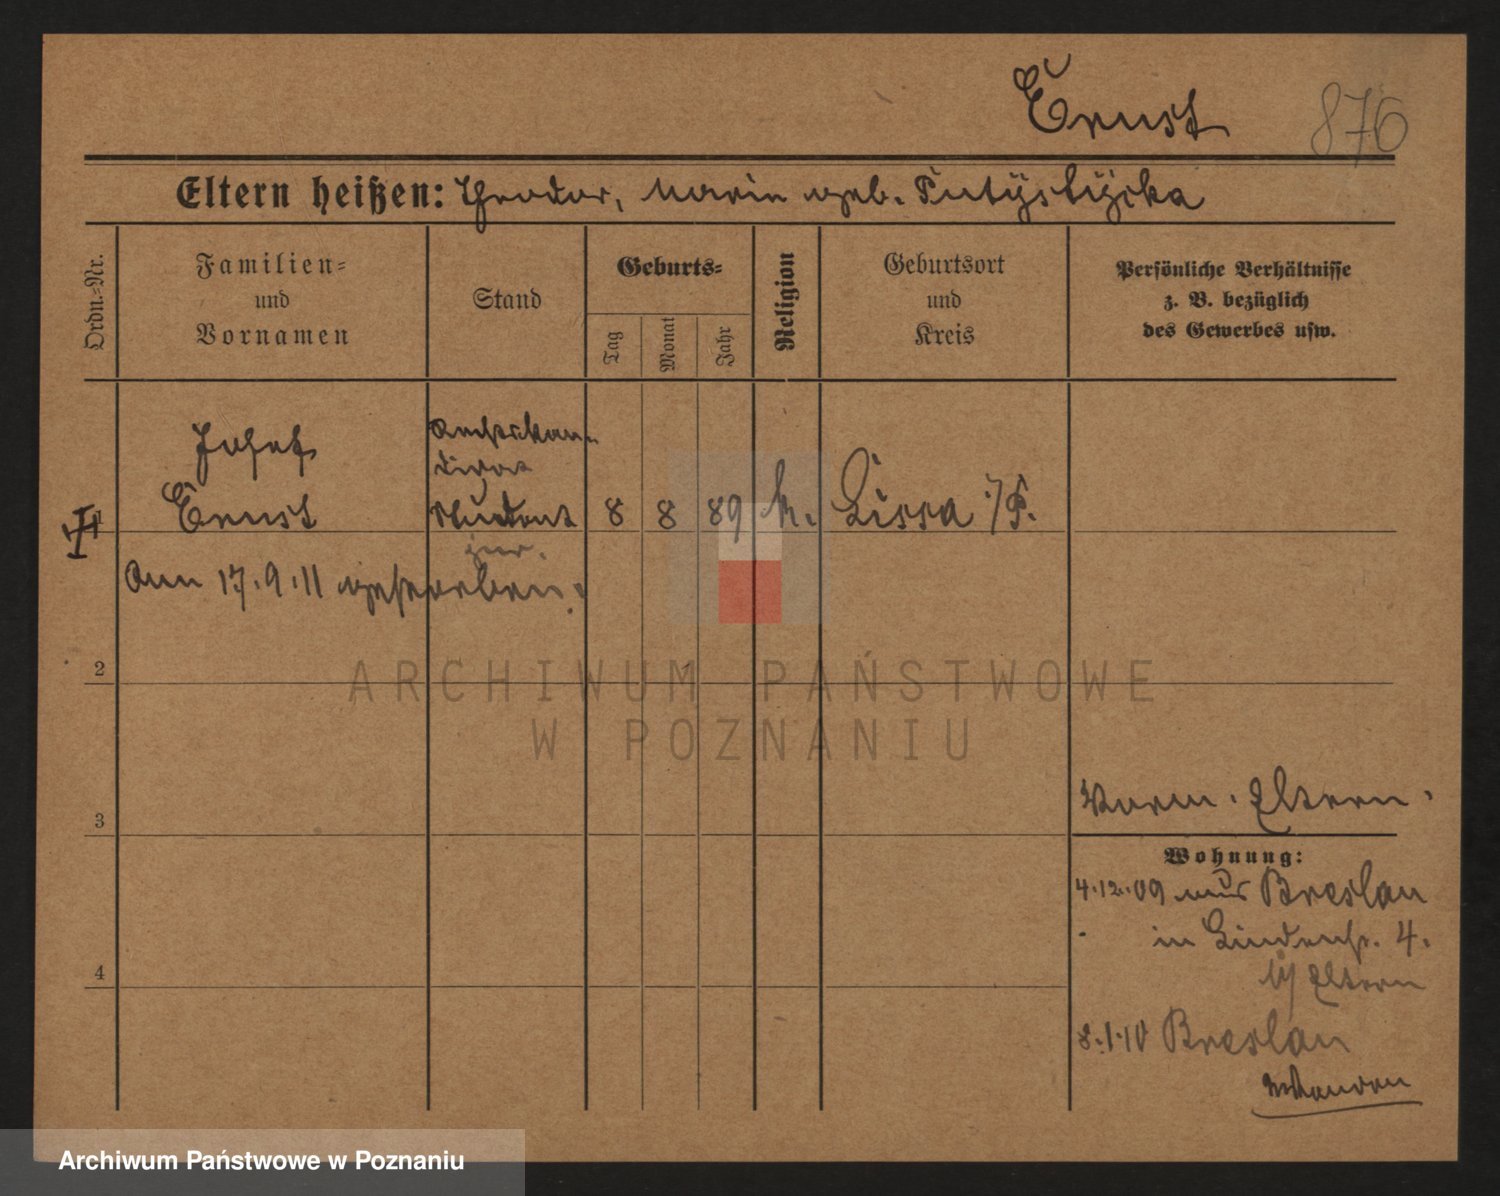 Ernst
876
Eltern heißen: Theodor, Maria geb.
Ordn.-Nr.
Familien-
und
Vornamen
Stand
Geburts-
Tag
Monat
Jahr
Religion
Geburtsort
und
Kreis
Persönliche Verhältnisse
z. B. bezüglich
des Gewerbes usw.
Josef
Ernst
Student
jur.
8 8 89 k. Lissa i/P.
am 17.9.11 gestorben.
2
3
4
Verm. Eltern.
Wohnung:
4.12.09 aus Breslau
in Lindenstr. 4.
b/ Eltern
8.1.10 Breslau
ARCHIWUM PAŃSTWOWE
W POZNANIU
Archiwum Państwowe w Poznaniu